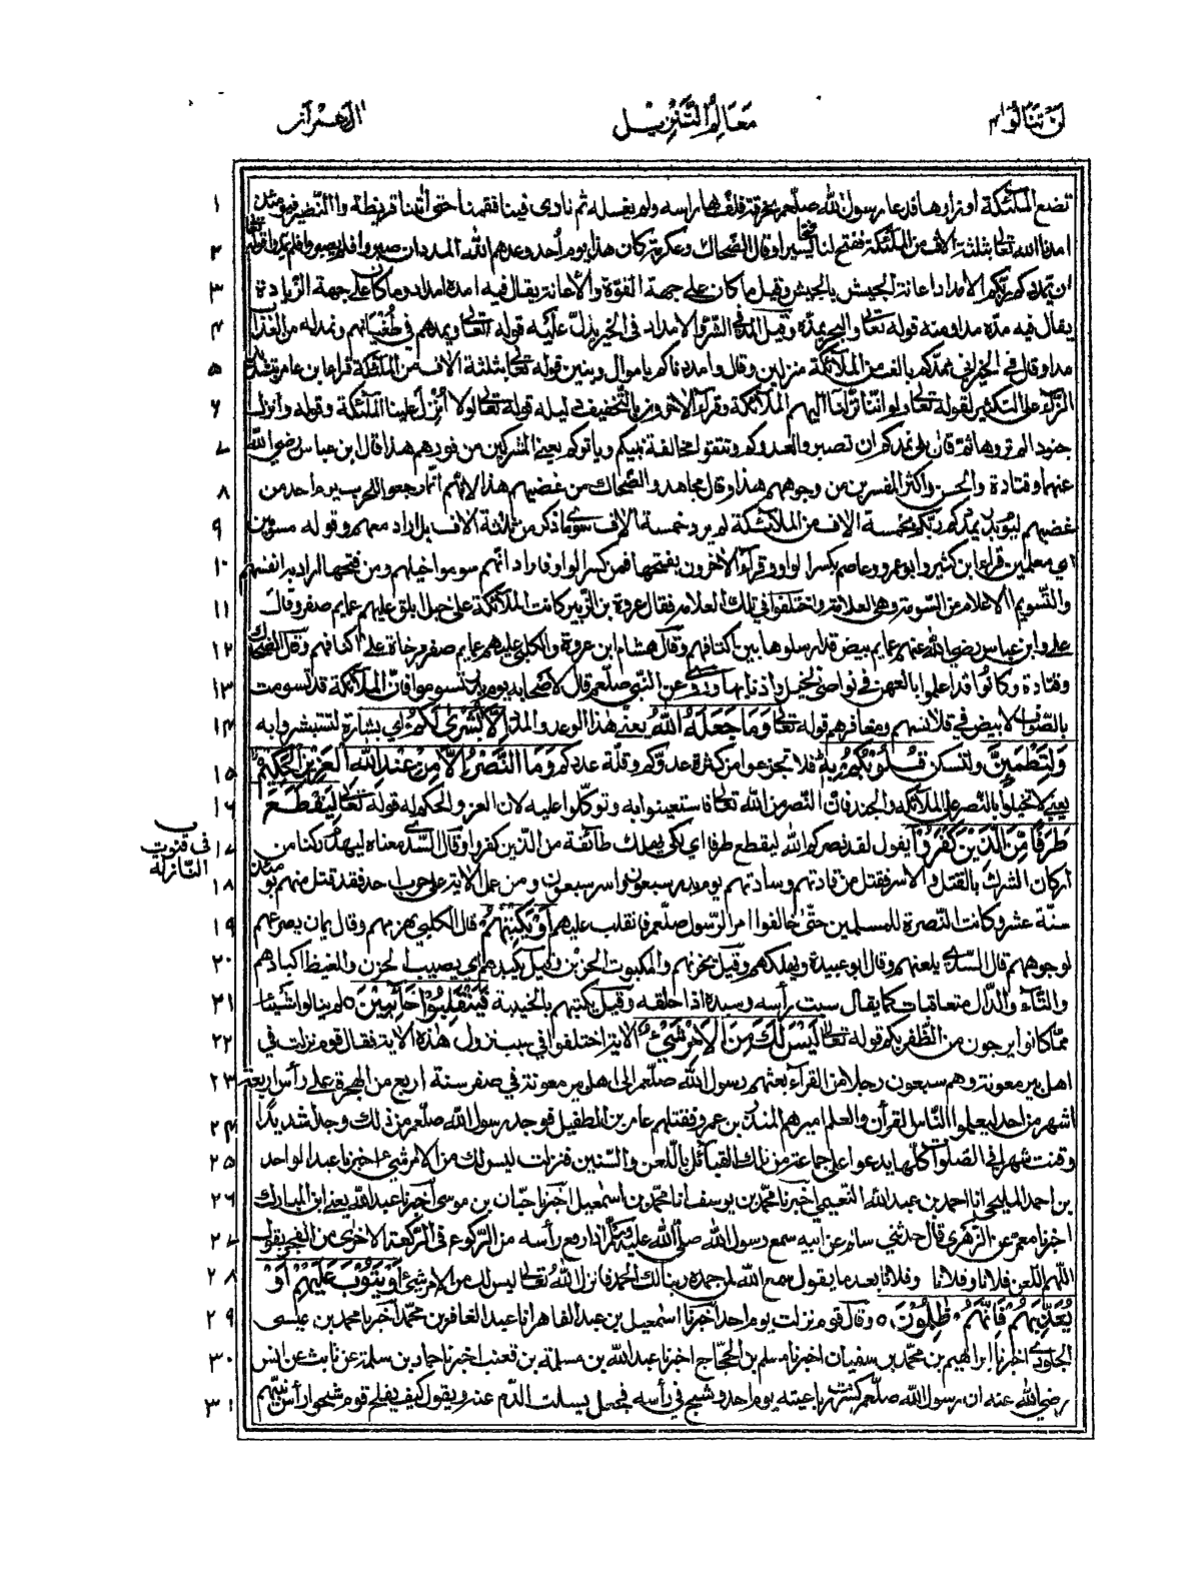 لن تنالوا ٤
معالم التنزیل
ال عمران
١ تضع الملٰئكة اوزارها فدعا رسول الله صلعم بخرقة فلف بها راسه ولم يغسله ثم نادى فينا فقمنا حتى اتينا قريظة والنضير فيومئذ
٢ امدنا الله تعا بثلثة الاف من الملٰئكة ففتح لنا فتحا يسيرا وقال الضحاك وعكرمة كان هذا يوم احد وعدهم الله المدد ان صبروا فلم يصبروا فلم يمدوا قوله تعا
٣ ان يمدكم ربكم الامداد اعانة الجيش بالجيش وقيل ما كان على جهة القوة والاعانة يقال فيه امده امدادا وما كان على جهة الزيادة
٤ يقال فيه مده مدا ومنه قوله تعالى والبحر يمده وقيل المد في الشر والامداد في الخير يدل عليه قوله تعالى ويمدهم في طغيانهم ونمد له من العذاب
٥ مدا وقال في الخير اني ممدكم بالف من الملآئكة منزلين وقال وامددناكم باموال وبنين قوله تعا بثلثة الاف من الملٰئكة قرأ ابن عامر بتشديد
٦ الزاء على التكثير لقوله تعا ولو اننا نزلنا اليهم الملآئكة وقرأ الاخرون بالتخفيف دليله قوله تعالى لولا انزل علينا الملٰئكة وقوله وانزل
٧ جنودا لم تروها ثم قال بلى نمدكم ان تصبروا لعدوكم وتتقوا مخالفة نبيكم وياتوكم يعني المشركين من فورهم هذا قال ابن عباس رضي الله
٨ عنهما وقتادة والحسن واكثر المفسرين من وجوههم هذا وقال مجاهد والضحاك من غضبهم هذا لانهم انما رجعوا للحرب يوم احد من
٩ غضبهم ليوم بدر يمددكم ربكم بخمسة الاف من الملآئكة لم يرد خمسة الاف سوى ما ذكر من ثلثة الاف بل اراد معهم وقوله مسومين
١٠ اي معلمين قرأ ابن كثير وابو عمرو وعاصم بكسر الواو وقرأ الاخرون بفتحها فمن كسر الواو فاراد انهم سوموا خيلهم ومن فتحها اراد به انفسهم
١١ والتسويم الاعلام من السومة وهي العلامة واختلفوا في تلك العلامة فقال عروة بن الزبير كانت الملآئكة على خيل بلق عليهم عمايم صفر وقال
١٢ علي وابن عباس رضي الله عنهم عمايم بيض قد ارسلوها بين اكتافهم وقال هشام ابن عروة والكلبي عليهم عمايم صفر مرخاة على اكتافهم وقال الضحاك
١٣ وقتادة وكانوا قد اعلموا بالعهن في نواصى الخيل واذنابها وروي عن النبي صلعم قال لاصحابه يوم بدر تسوموا فان الملآئكة قد تسومت
١٤ بالصوف الابيض في قلانسهم ومغافرهم قوله تعا وَمَا جَعَلَهُ اللهُ يعني هذا الوعد والمدد اِلَّا بُشْرٰى لَكُمْ اي بشارة لتستبشروا به
١٥ وَلِتَطْمَئِنَّ ولتسكن قُلُوْبُكُمْ بِهٖ فلا تجزعوا من كثرة عدوكم وقلة عددكم وَمَا النَّصْرُ اِلَّا مِنْ عِنْدِ اللهِ الْعَزِيْزِ الْحَكِيْمِ
١٦ يعني لا تحيلوا بالنصر على الملآئكة والجند فان النصر من الله تعالى فاستعينوا به وتوكلوا عليه لان العز والحكم له قوله تعالى لِيَقْطَعَ
١٧ طَرَفًا مِّنَ الَّذِيْنَ كَفَرُوْا يقول لقد نصركم الله ليقطع طرفا اي لكي يهلك طائفة من الذين كفروا وقال السدي معناه ليهدم ركنا من
ب
في قنوت
النازلة
١٨ اركان الشرك بالقتل والاسر فقتل من قادتهم وسادتهم يوم بدر سبعون واسر سبعون ومن حمل الاية على حرب احد فقد قتل منهم يومئذ
١٩ ستة عشر وكانت النصرة للمسلمين حتى خالفوا امر الرسول صلعم فانقلب عليهم اَوْ يَكْبِتَهُمْ قال الكلبي يهزمهم وقال يمان يصرعهم
٢٠ لوجوههم قال السدي يلعنهم وقال ابو عبيدة ويهلكهم وقيل يحزنهم والمكبوت الحزين وقيل يكبدهم اي يصيب الحزن والغيظ اكبادهم
٢١ والتآء والدال متعاقبات كما يقال سبت رأسه وسبده اذا حلقه وقيل يكبتهم بالخيبة فَيَنْقَلِبُوْا خَائِبِيْنَ ٥ لم ينالوا شيئا
٢٢ مما كانوا يرجون من الظفر بكم قوله تعالى لَيْسَ لَكَ مِنَ الْاَمْرِ شَيْءٌ الاية اختلفوا في سبب نزول هذه الاية فقال قوم نزلت في
٢٣ اهل بير معونة وهم سبعون رجلا من القرآء بعثهم رسول الله صلعم الى اهل بير معونة في صفر سنة اربع من الهجرة على رأس اربعة
٢٤ اشهر من احد ليعلموا الناس القرآن والعلم اميرهم المنذر بن عمرو فقتلهم عامر بن الطفيل فوجد رسول الله صلعم من ذلك وجدا شديدا
٢٥ وقنت شهرا في الصلوات كلها يدعوا على جماعة من تلك القبائل باللعن والسنين فنزلت ليس لك من الامر شيء اخبرنا عبد الواحد
٢٦ بن احمد المليحي انا احمد بن عبد الله النعيمي اخبرنا محمد بن يوسف انا محمد بن اسمعيل اخبرنا حبان بن موسى اخبرنا عبد الله يعني ابن المبارك
٢٧ اخبرنا معمر عن الزهري قال حدثني سالم عن ابيه سمع رسول الله صلى الله عليه وسلم اذا رفع رأسه من الركوع في الركعة الاخرى من الفجر يقول
٢٨ اللهم العن فلانا وفلانا وفلانا بعد ما يقول سمع الله لمن حمده ربنا لك الحمد فانزل الله تعالى ليس لك من الامر شيء اَوْ يَتُوْبَ عَلَيْهِمْ اَوْ
٢٩ يُعَذِّبَهُمْ فَاِنَّهُمْ ظٰلِمُوْنَ ٥ وقال قوم نزلت يوم احد اخبرنا اسمعيل بن عبد القاهر انا عبد الغافر بن محمد اخبرنا محمد بن عيسى
٣٠ الجلودي اخبرنا ابراهيم بن محمد بن سفيان اخبرنا مسلم بن الحجاج اخبرنا عبد الله بن مسلمة بن قعنب اخبرنا حماد بن سلمة عن ثابت عن انس
٣١ رضي الله عنه ان رسول الله صلعم كسرت رباعيته يوم احد وشج في رأسه فجعل يسلت الدم عنه ويقول كيف يفلح قوم شجوا رأس نبيهم